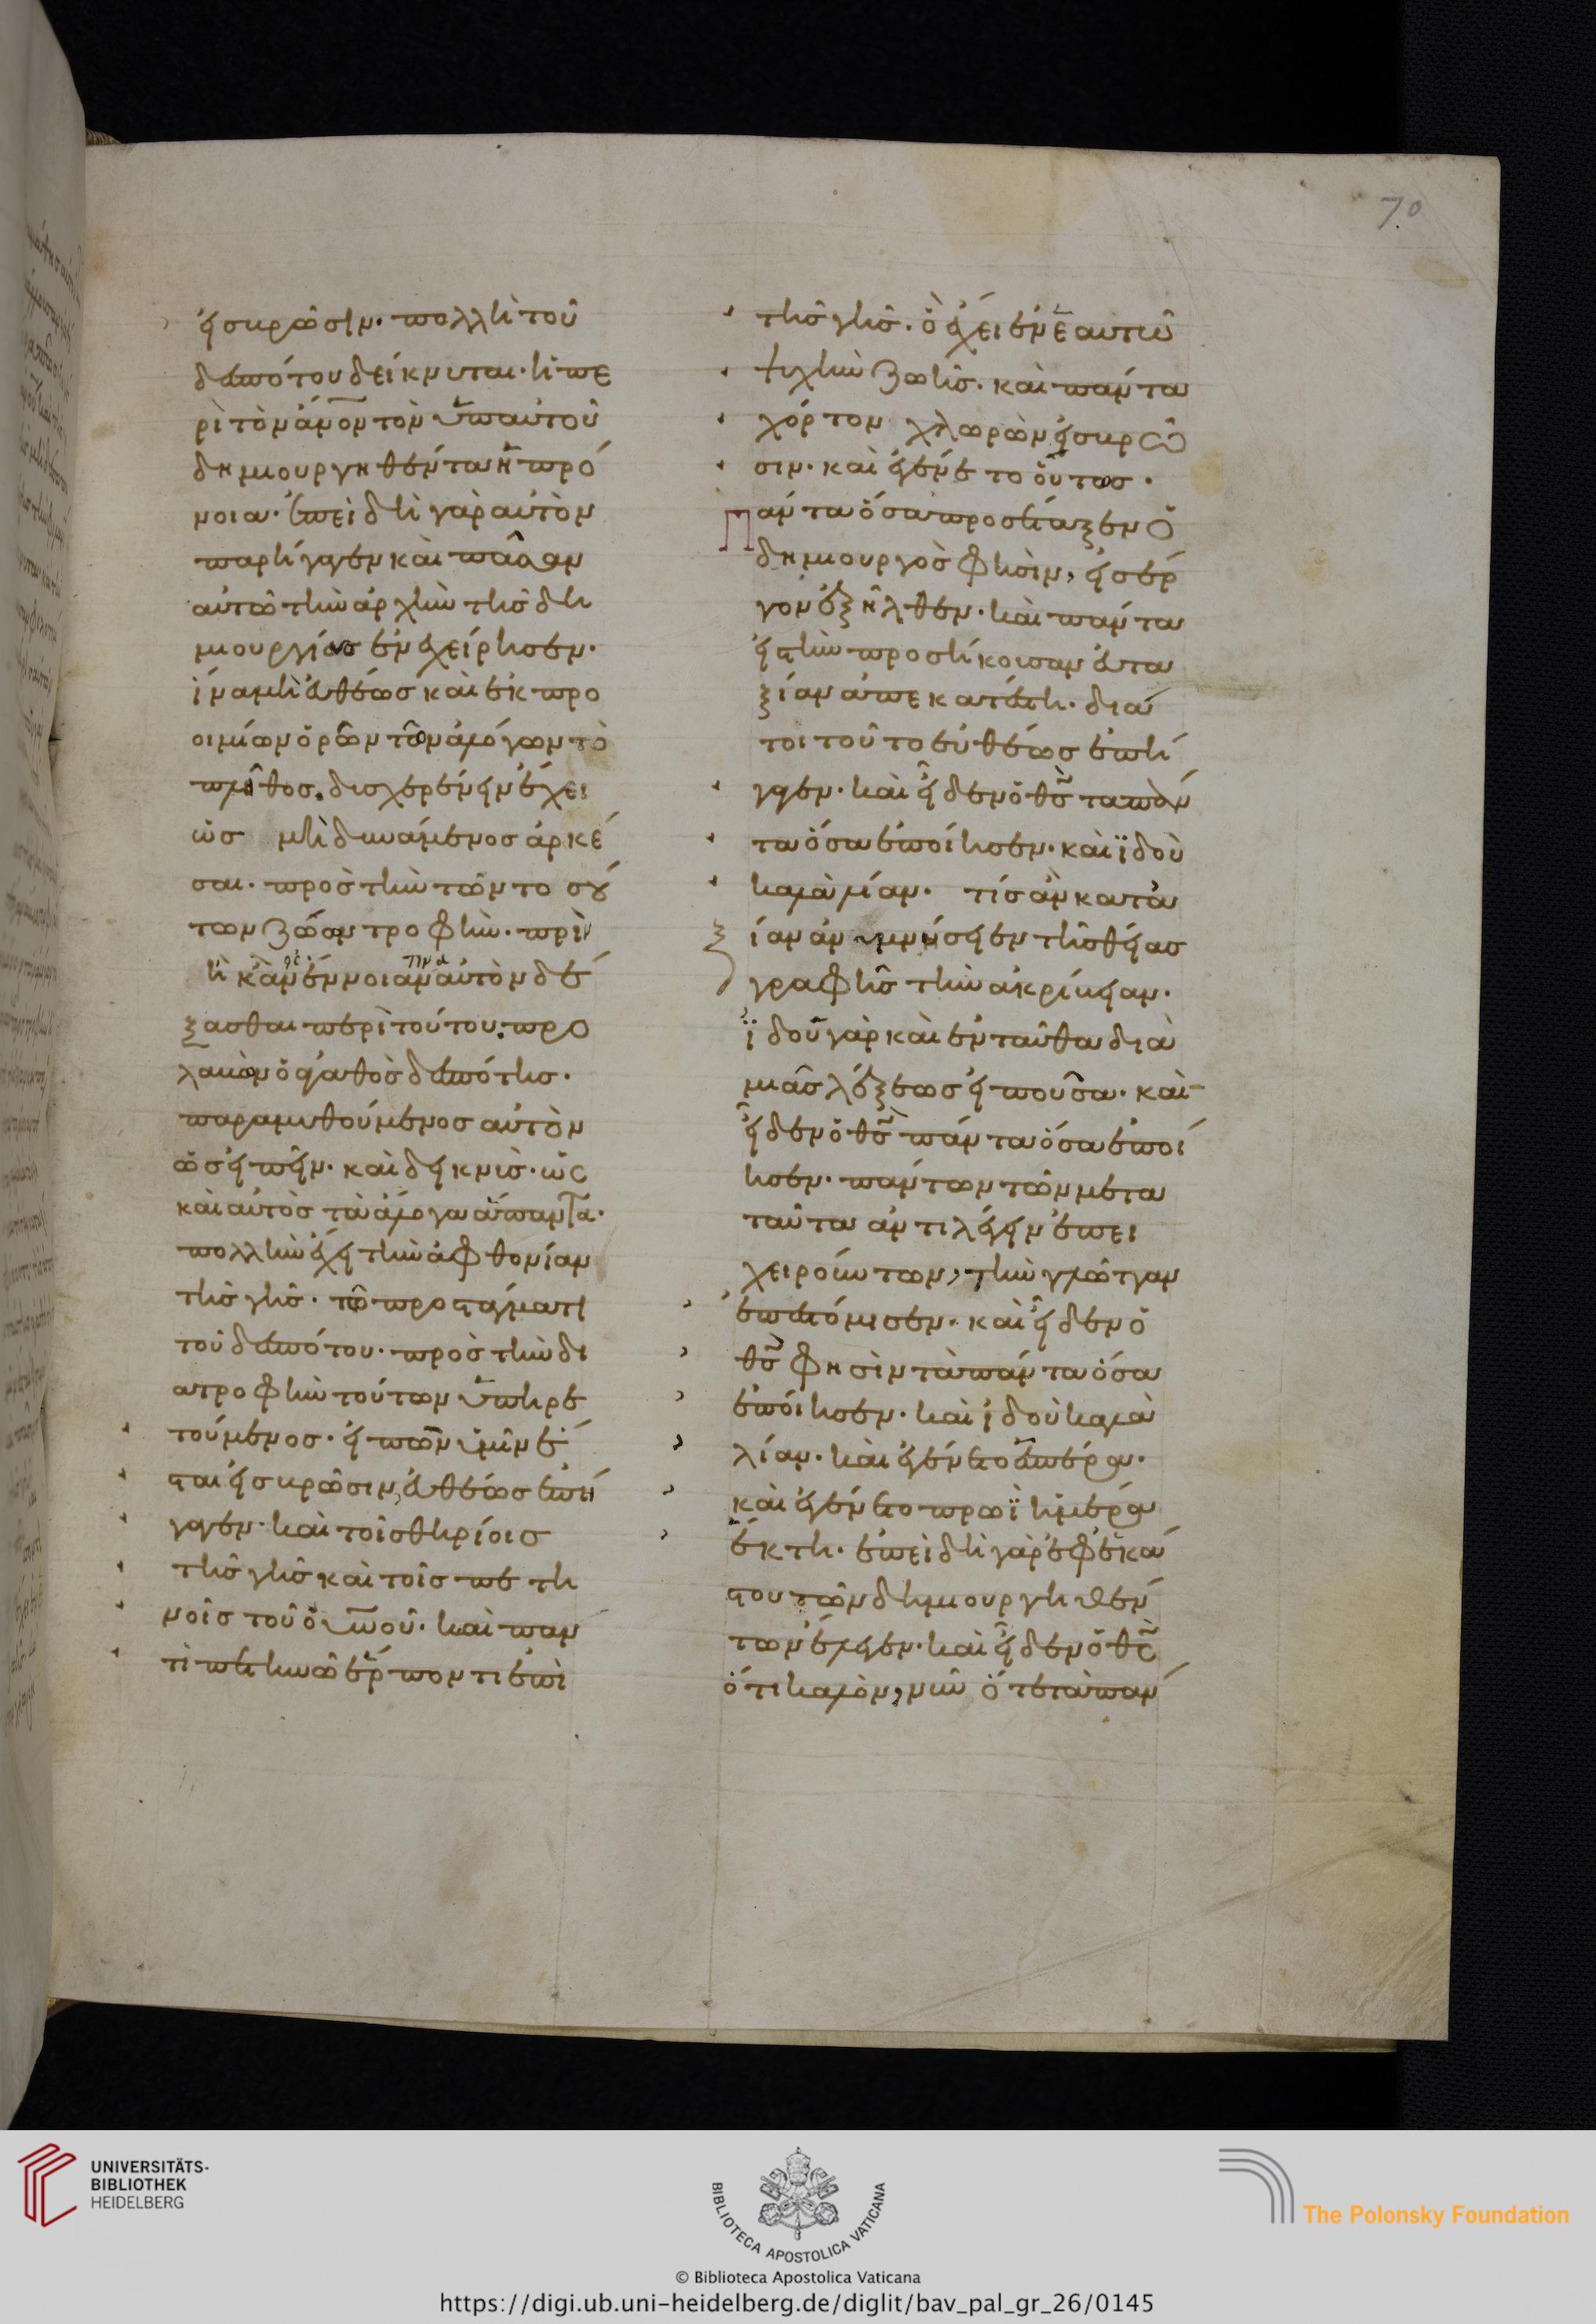 70
εἰσ βρῶσιν. πολλὴ τοῦ
δεσπότου δείκνυται. ἡ πε
ρὶ τὸν ἄνον τὸν ὑπ αὐτοῦ
δημιουργηθέντα ἡ πρό
νοια. ἐπειδὴ γὰρ αὐτὸν
παρήγαγεν καὶ πᾶσαν
αὐτῶ τὴν ἀρχὴν τῆσ δη
μιουργίασ ἐνεχείρησεν.
ἵνα μὴ εὐθέωσ καὶ ἐκ προ
οιμίων ὁρῶν τῶν ἀλόγων τὸ
πλῆθοσ. δυσχεραίνειν ἔχει
ὡσ μὴ δυνάμενοσ ἀρκέ
σαι. πρὸσ τὴν τῶν τοσού
των ζώων τροφὴν. πρὶν
ἢ κἂν εἰσ ἔννοιάν τινα αὐτὸν δέ
ξασθαι περὶ τούτου. προ
λαβὼν ὁ ἀγαθὸσ δεσπότησ.
παραμυθούμενοσ αὐτὸν
ὡσ εἰπεῖν. καὶ δεικνὺσ. ὡσ
καὶ αὐτὸσ τὰ ἄλογα ἅπαντα.
πολλὴν ἔχει τὴν ἀφθονίαν
τῆσ γῆσ. τῶ προστάγματι
τοῦ δεσπότου. πρὸσ τὴν δι
ατροφὴν τούτων ὑπηρε
τούμενοσ. εἰπὼν ὑμῖν ἔ
σται εἰσ βρῶσιν, εὐθέωσ ἐπή
γαγεν. καὶ τοῖσ θηρίοισ
τῆσ γῆσ καὶ τοῖσ πετη
νοῖσ τοῦ οὐνοῦ. καὶ παν
τὶ ἑρπετῶ ἕρποντι ἐπὶ
τῆσ γῆσ. ὃ ἔχει ἐν ἑαυτῶ
ψυχὴν ζωῆσ. καὶ πάντα
χόρτον χλωρὸν εἰσ βρῶ
σιν. καὶ ἐγένετο οὕτωσ.
Πάντα ὅσα προσέταξεν ὁ
δημιουργὸσ φησὶν, εἰσ ἔρ
γον ἐξῆλθεν. καὶ πάντα
εἰσ τὴν προσήκουσαν εὐτα
ξίαν ἀπεκατέστη. διά
τοι τοῦτο εὐθέωσ ἐπή
γαγεν. καὶ εἶδεν ὁ θσ τα πάν
τα ὅσα ἐποίησεν. καὶ ἰδοὺ
καλὰ λίαν. τίσ ἂν κατ ἀ
ξίαν ἀνυμνήσειεν τῆσ θείασ
γραφῆσ τὴν ἀκρίβειαν.
ἰδοῦ γὰρ καὶ ἐνταῦθα διὰ
μιᾶσ λέξεωσ εἰποῦσα. καὶ
εἶδεν ὁ θσ πάντα ὅσα ἐποί
ησεν. πάντων τῶν μετα
ταῦτα ἀντιλέγειν ἐπι
χειρούντων, τὴν γλῶτταν
ἐπεστόμισεν. καὶ εἶδεν ὁ
θσ φησὶν τὰ πάντα ὅσα
ἐποίησεν. καὶ ἰδοὺ καλὰ
λίαν. καὶ ἐγένετο ἑσπέρα.
καὶ ἐγένετο πρωῒ ἡμέρα
ἕκτη. ἐπειδὴ γὰρ ἐφ ἑκά
στου τῶν δημιουργηθέν
των ἔλεγεν. καὶ εἶδεν ὁ θσ
ὅτι καλὸν, νῦν ὅτε τὰ πάν
UNIVERSITÄTS-
BIBLIOTHEK
HEIDELBERG
BIBLIOTECA APOSTOLICA VATICANA
The Polonsky Foundation
© Biblioteca Apostolica Vaticana
https://digi.ub.uni-heidelberg.de/diglit/bav_pal_gr_26/0145